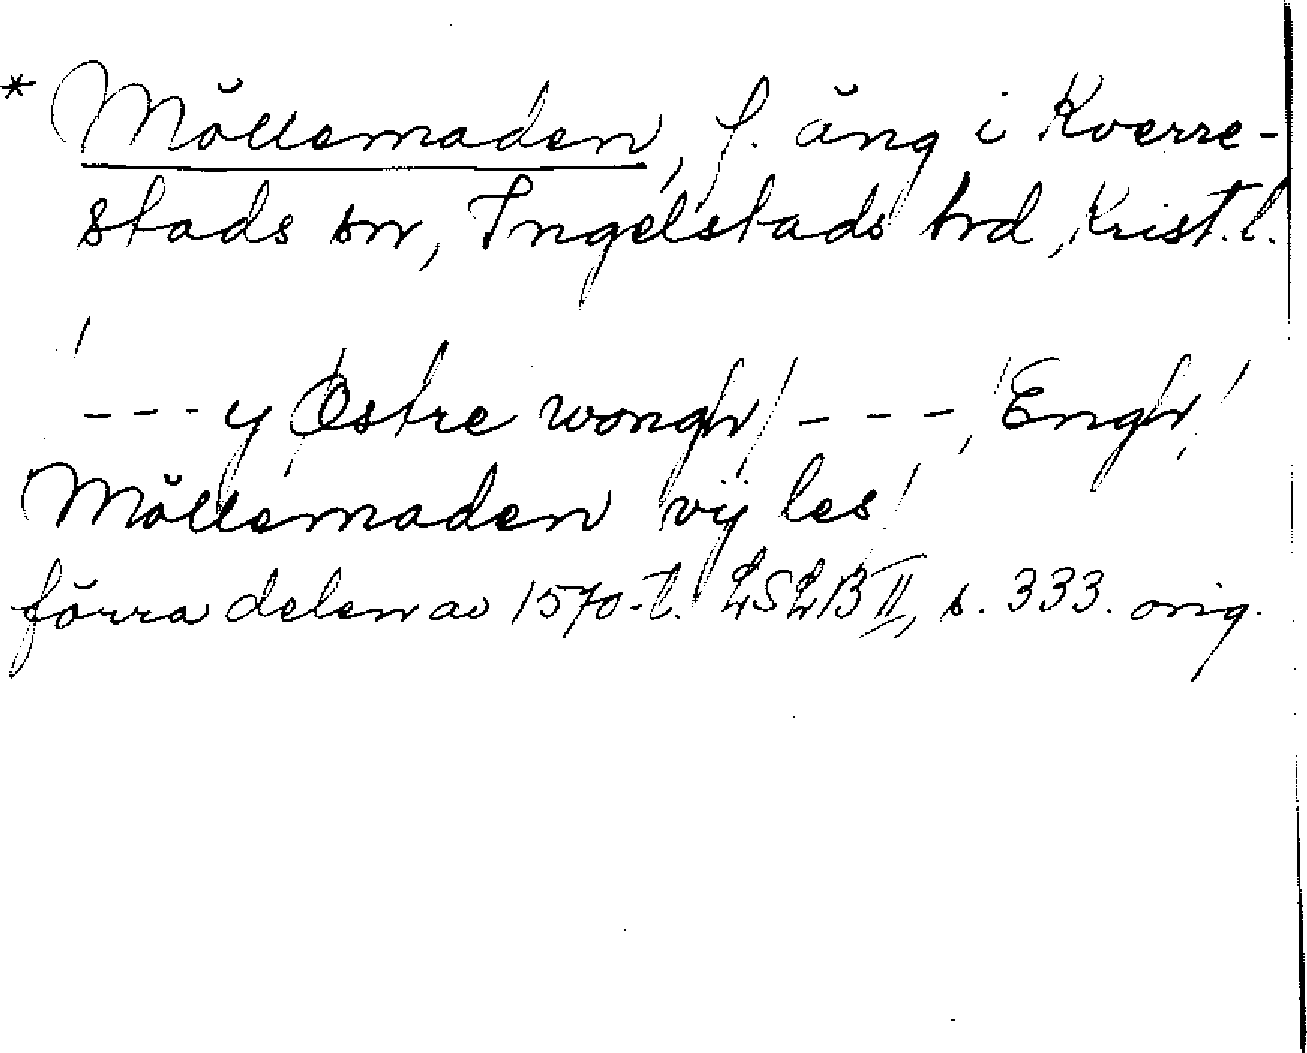 * Möllemaden, f. äng i Kverre-
stads sn, Ingelstads hrd, Krist. l.
/ - - - y Østre wongh / - - - , / Engh /
Möllemaden vij les /
förra delen av 1570-t. LSLB II, s. 333. orig.